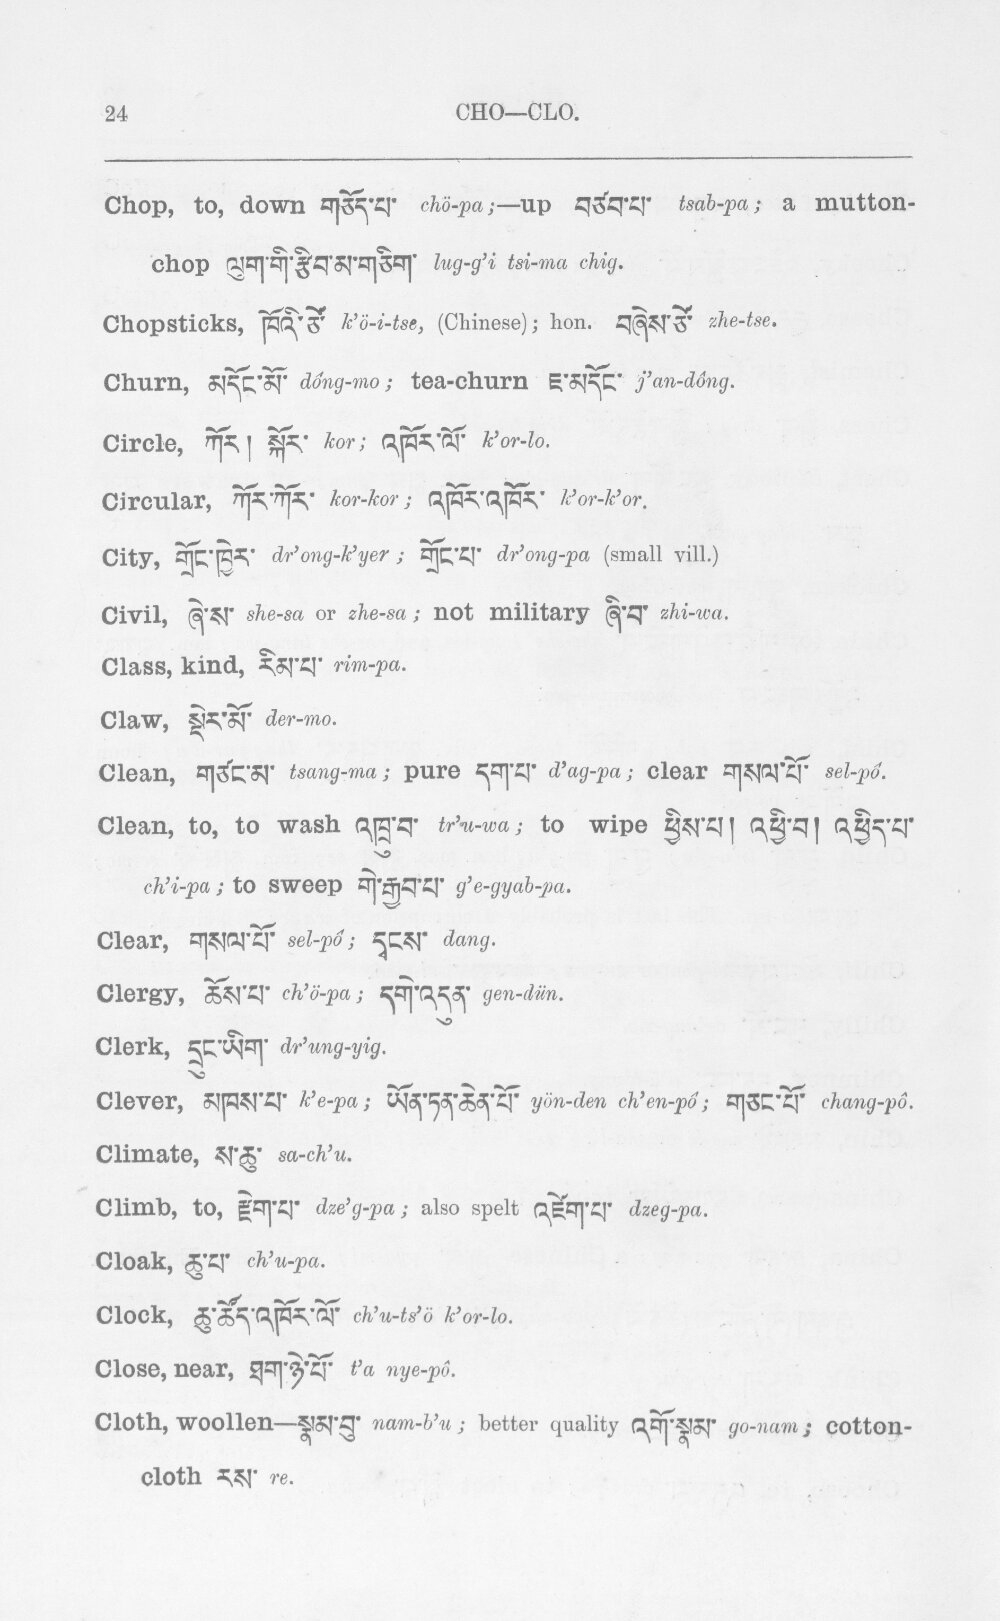 24 CHO—CLO.
Chop, to, down གཅོད་པ་ chö-pa;—up བཙབ་པ་ tsab-pa; a mutton-
chop ལུག་གི་རྩིབ་མ་གཅིག་ lug-g'i tsi-ma chig.
Chopsticks, ཁོའི་ཙོ་ k'ö-i-tse, (Chinese); hon. བཞེས་ཙོ་ zhe-tse.
Churn, མདོང་མོ་ dóng-mo; tea-churn ཇ་མདོང་ j'an-dóng.
Circle, ཀོར། སྐོར་ kor; འཁོར་ལོ་ k'or-lo.
Circular, ཀོར་ཀོར་ kor-kor; འཁོར་འཁོར་ k'or-k'or.
City, གྲོང་ཁྱེར་ dr'ong-k'yer; གྲོང་པ་ dr'ong-pa (small vill.)
Civil, ཞེ་ས་ she-sa or zhe-sa; not military ཞི་བ་ zhi-wa.
Class, kind, རིམ་པ་ rim-pa.
Claw, སྡེར་མོ་ der-mo.
Clean, གཙང་མ་ tsang-ma; pure དག་པ་ d'ag-pa; clear གསལ་པོ་ sel-pó.
Clean, to, to wash འཁྲུ་བ་ tr'u-wa; to wipe ཕྱིས་པ། འཕྱི་བ། འཕྱིད་པ་
ch'i-pa; to sweep གེ་རྒྱབ་པ་ g'e-gyab-pa.
Clear, གསལ་པོ་ sel-pó; དྭངས་ dang.
Clergy, ཆོས་པ་ ch'ö-pa; དགེ་འདུན་ gen-dün.
Clerk, དྲུང་ཡིག་ dr'ung-yig.
Clever, མཁས་པ་ k'e-pa; ཡོན་ཏན་ཆེན་པོ་ yön-den ch'en-pó; གཅང་པོ་ chang-pô.
Climate, ས་ཆུ་ sa-ch'u.
Climb, to, རྫེག་པ་ dze'g-pa; also spelt འཛེག་པ་ dzeg-pa.
Cloak, ཆུ་པ་ ch'u-pa.
Clock, ཆུ་ཚོད་འཁོར་ལོ་ ch'u-ts'ö k'or-lo.
Close, near, ཐག་ཉེ་པོ་ t'a nye-pô.
Cloth, woollen—སྣམ་བུ་ nam-b'u; better quality འགོ་སྣམ་ go-nam; cotton-
cloth རས་ re.